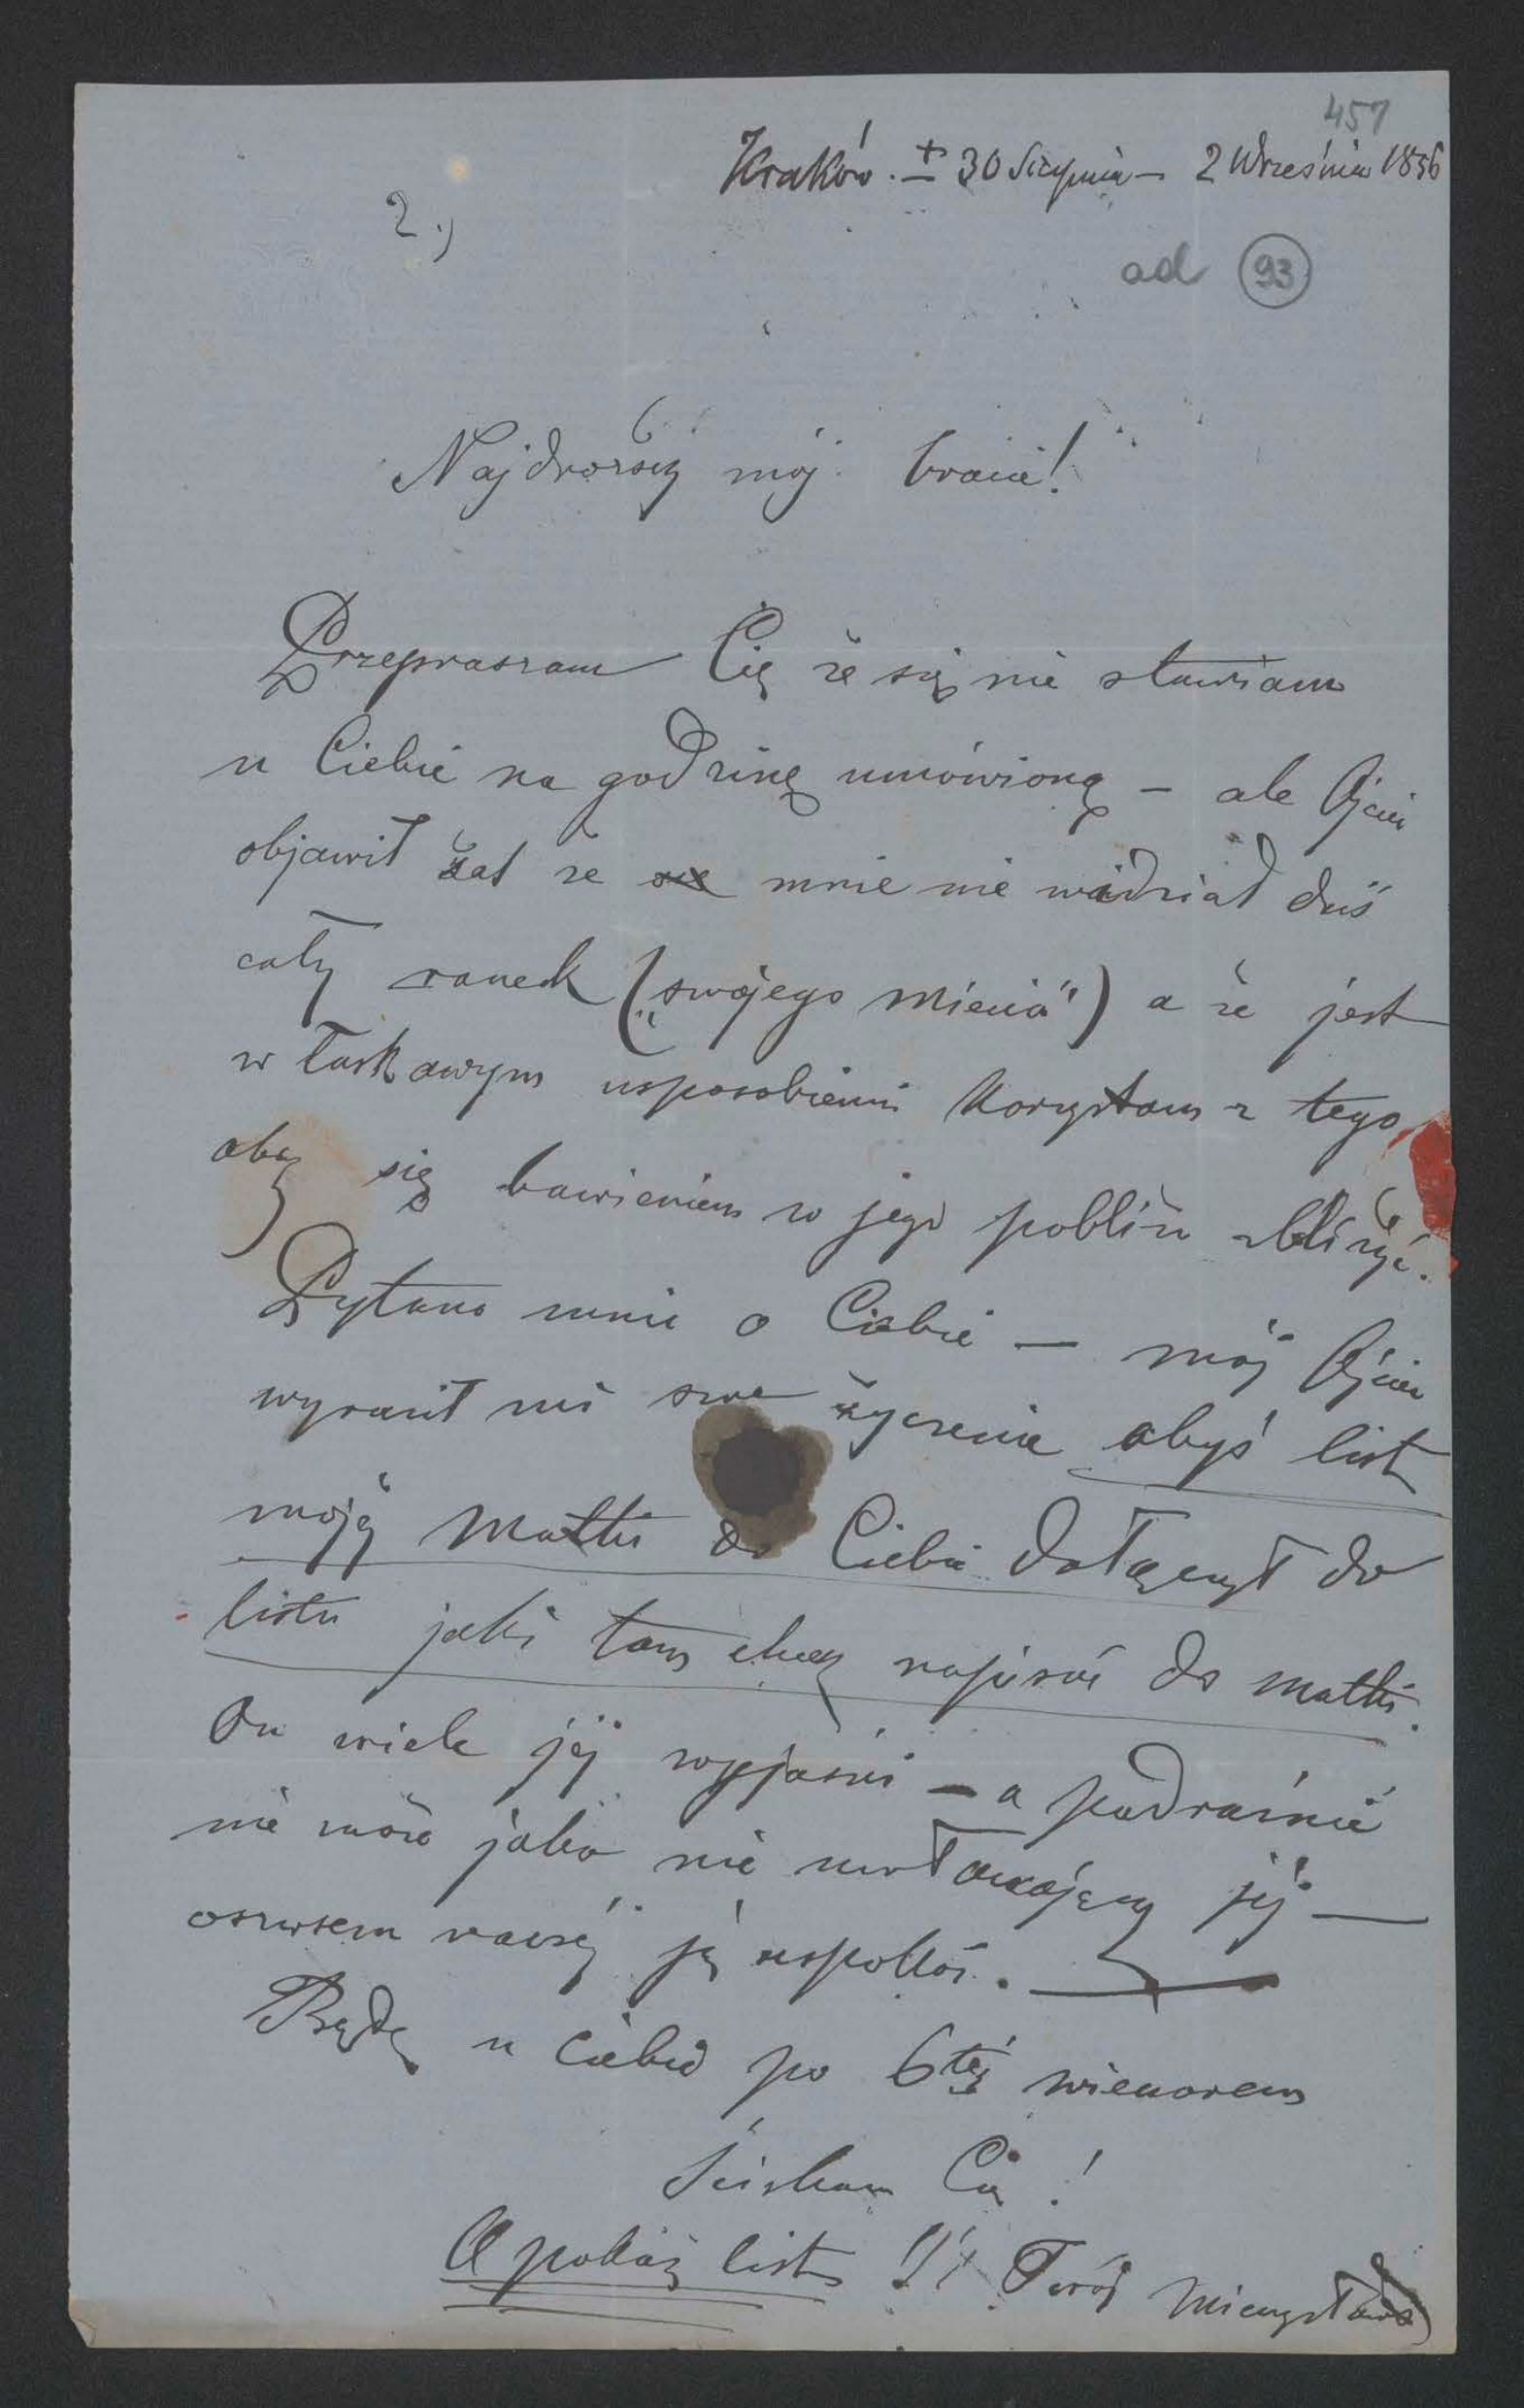 457
Kraków. ± 30 Sierpnia – 2 Września 1856
2.)
ad 93
Najdroższy mój bracie!
Przepraszam Cię że się nie stawiam
u Ciebie na godzinę umówioną – ale Ojciec
objawił żal że mnie nie widział dziś
cały ranek („swojego Miecia") a że jest
w łaskawym usposobieniu korzystam z tego
aby się bawieniem w jego pobliżu zbliżyć.
Pytano mnie o Ciebie — mój Ojciec
wyraził mi swe życzenie abyś list
mojéj Matki do Ciebie dołączył do
listu jaki tam chcesz napisać do matki.
On wiele jéj wyjaśni – a podraźnić
nie może jako nie jéj —
owszem raczéj ją uspokoi. —
Będę u Ciebie po 6téj wieczorem
Ściskam Cię!
A pokaż list!! Twój Mieczysław